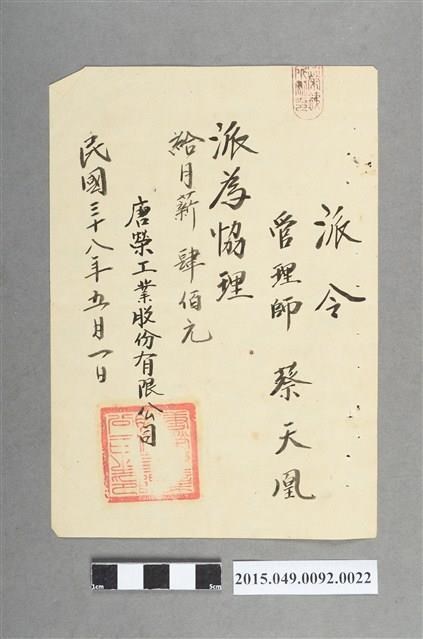 派令
管理師 蔡天凰
派為協理
給月薪肆佰元
唐榮工業股份有限公司
民國三十八年五月一日
1cm 5cm
2015.049.0092.0022